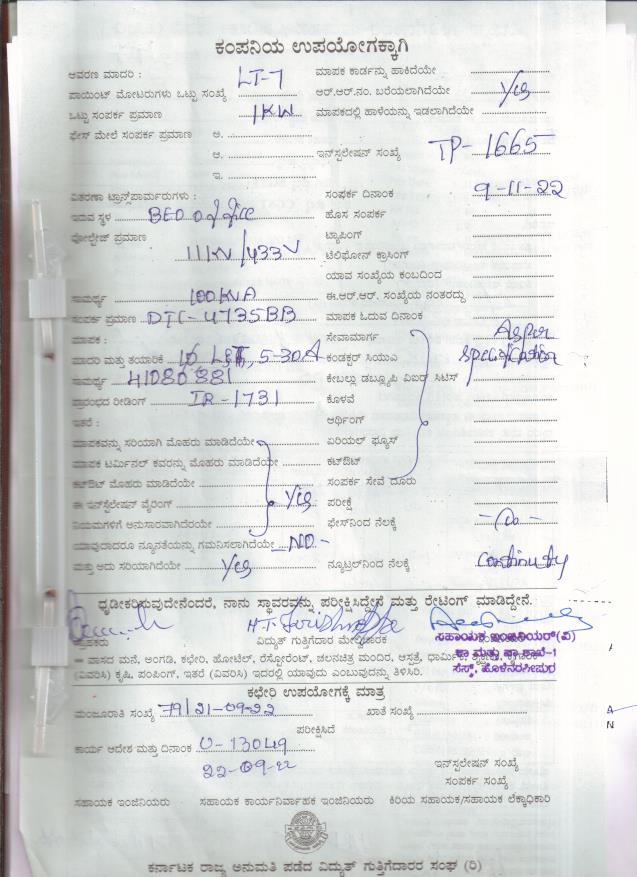 ಕಂಪನಿಯ ಉಪಯೋಗಕ್ಕಾಗಿ
ಆವರಣ ಮಾದರಿ : LT-7 ಮಾಪಕ ಕಾರ್ಡನ್ನು ಹಾಕಿದೆಯೇ
ಪಾಯಿಂಟ್ ಮೋಟರುಗಳು ಒಟ್ಟು ಸಂಖ್ಯೆ ಆರ್.ಆರ್.ನಂ. ಬರೆಯಲಾಗಿದೆಯೇ Yes
ಒಟ್ಟು ಸಂಪರ್ಕ ಪ್ರಮಾಣ 1KW ಮಾಪಕದಲ್ಲಿ ಹಾಳೆಯನ್ನು ಇಡಲಾಗಿದೆಯೇ
ಫೇಸ್ ಮೇಲೆ ಸಂಪರ್ಕ ಪ್ರಮಾಣ ಅ.
ಆ. ಇನ್‌ಸ್ಟಲೇಷನ್ ಸಂಖ್ಯೆ TP-1665
ಇ.
ವಿತರಣಾ ಟ್ರಾನ್ಸ್‌ಪಾರ್ಮರುಗಳು : ಸಂಪರ್ಕ ದಿನಾಂಕ 9-11-22
ಇರುವ ಸ್ಥಳ BEO office ಹೊಸ ಸಂಪರ್ಕ
ವೋಲ್ಟೇಜ್ ಪ್ರಮಾಣ 11KV/433V ಟ್ಯಾಪಿಂಗ್
ಟೆಲಿಫೋನ್ ಕ್ರಾಸಿಂಗ್
ಯಾವ ಸಂಖ್ಯೆಯ ಕಂಬದಿಂದ
ಸಾಮರ್ಥ್ಯ 100KVA ಈ.ಆರ್.ಆರ್. ಸಂಖ್ಯೆಯ ನಂತರದ್ದು
ಸಂಪರ್ಕ ಪ್ರಮಾಣ DTC-4735BB ಮಾಪಕ ಓದುವ ದಿನಾಂಕ
ಮಾಪಕ : ಸೇವಾಮಾರ್ಗ As per
ಮಾದರಿ ಮತ್ತು ತಯಾರಿಕೆ 5-30A ಕಂಡಕ್ಟರ್ ಸಿಯುಎ Specification
ಸಾಮರ್ಥ್ಯ 41080881 ಕೇಬಲ್ಲು ಡಬ್ಲ್ಯೂಪಿ ವಿಐರ್ ಸಿಟಿಸ್
ಪ್ರಾರಂಭದ ರೀಡಿಂಗ್ IR-1731 ಕೊಳವೆ
ಇತರೆ : ಆರ್ಥಿಂಗ್
ಮಾಪಕವನ್ನು ಸರಿಯಾಗಿ ಮೊಹರು ಮಾಡಿದೆಯೇ ಏರಿಯಲ್ ಫ್ಯೂಸ್
ಮಾಪಕ ಟರ್ಮಿನಲ್ ಕವರನ್ನು ಮೊಹರು ಮಾಡಿದೆಯೇ ಕಟ್‌ಔಟ್
ಕಟ್‌ಔಟ್ ಮೊಹರು ಮಾಡಿದೆಯೇ ಸಂಪರ್ಕ ಸೇವೆ ದೂರು
ಈ ಇನ್‌ಸ್ಟಲೇಷನ್ ವೈರಿಂಗ್ Yes ಪರೀಕ್ಷೆ
ನಿಯಮಗಳಿಗೆ ಅನುಸಾರವಾಗಿದೆರಯೇ ಫೇಸ್‌ನಿಂದ ನೆಲಕ್ಕೆ -Do-
ಯಾವುದಾದರೂ ನ್ಯೂನತೆಯನ್ನು ಗಮನಿಸಲಾಗಿದೆಯೇ -NO-
ಮತ್ತು ಅದು ಸರಿಯಾಗಿದೆಯೇ Yes ನ್ಯೂಟ್ರಲ್‌ನಿಂದ ನೆಲಕ್ಕೆ Continuity
ಧೃಡೀಕರಿಸುವುದೇನೆಂದರೆ, ನಾನು ಸ್ಥಾವರವನ್ನು ಪರೀಕ್ಷಿಸಿದ್ದೇನೆ ಮತ್ತು ರೇಟಿಂಗ್ ಮಾಡಿದ್ದೇನೆ.
ವಿದ್ಯುತ್ ಗುತ್ತಿಗೆದಾರ ಮೇಲ್ವಿಚಾರಕ ಸಹಾಯಕ ಇಂಜಿನಿಯರ್(ವಿ)
ವಾಸದ ಮನೆ, ಅಂಗಡಿ, ಕಛೇರಿ, ಹೋಟೆಲ್, ರೆಸ್ಟೋರೆಂಟ್, ಚಲನಚಿತ್ರ ಮಂದಿರ, ಆಸ್ಪತ್ರೆ, ಧಾರ್ಮಿಕ
(ವಿವರಿಸಿ) ಕೃಷಿ, ಪಂಪಿಂಗ್, ಇತರೆ (ವಿವರಿಸಿ) ಇದರಲ್ಲಿ ಯಾವುದು ಎಂಬುವುದನ್ನು ತಿಳಿಸಿರಿ. ಸೆಸ್ಕ್, ಹೊಳೆನರಸೀಪುರ
ಕಛೇರಿ ಉಪಯೋಗಕ್ಕೆ ಮಾತ್ರ
ಮಂಜೂರಾತಿ ಸಂಖ್ಯೆ 79/21-09-22 ಖಾತೆ ಸಂಖ್ಯೆ
ಪರೀಕ್ಷಿಸಿದೆ
ಕಾರ್ಯ ಆದೇಶ ಮತ್ತು ದಿನಾಂಕ 0-13049
22-09-22 ಇನ್‌ಸ್ಟಲೇಷನ್ ಸಂಖ್ಯೆ
ಸಂಪರ್ಕ ಸಂಖ್ಯೆ
ಸಹಾಯಕ ಇಂಜಿನಿಯರು ಸಹಾಯಕ ಕಾರ್ಯನಿರ್ವಾಹಕ ಇಂಜಿನಿಯರು ಕಿರಿಯ ಸಹಾಯಕ/ಸಹಾಯಕ ಲೆಕ್ಕಾಧಿಕಾರಿ
ಕರ್ನಾಟಕ ರಾಜ್ಯ ಅನುಮತಿ ಪಡೆದ ವಿದ್ಯುತ್ ಗುತ್ತಿಗೆದಾರರ ಸಂಘ (ರಿ)